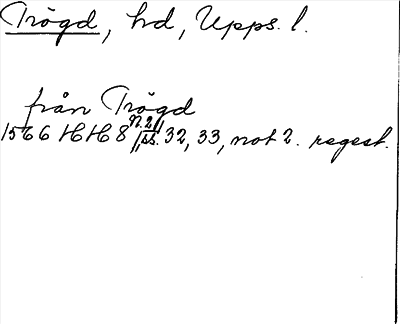 Trögd, hd, Upps. l.
från Trögd
1566 HH 8 n. 2 // ss. 32, 33, not 2. regest.